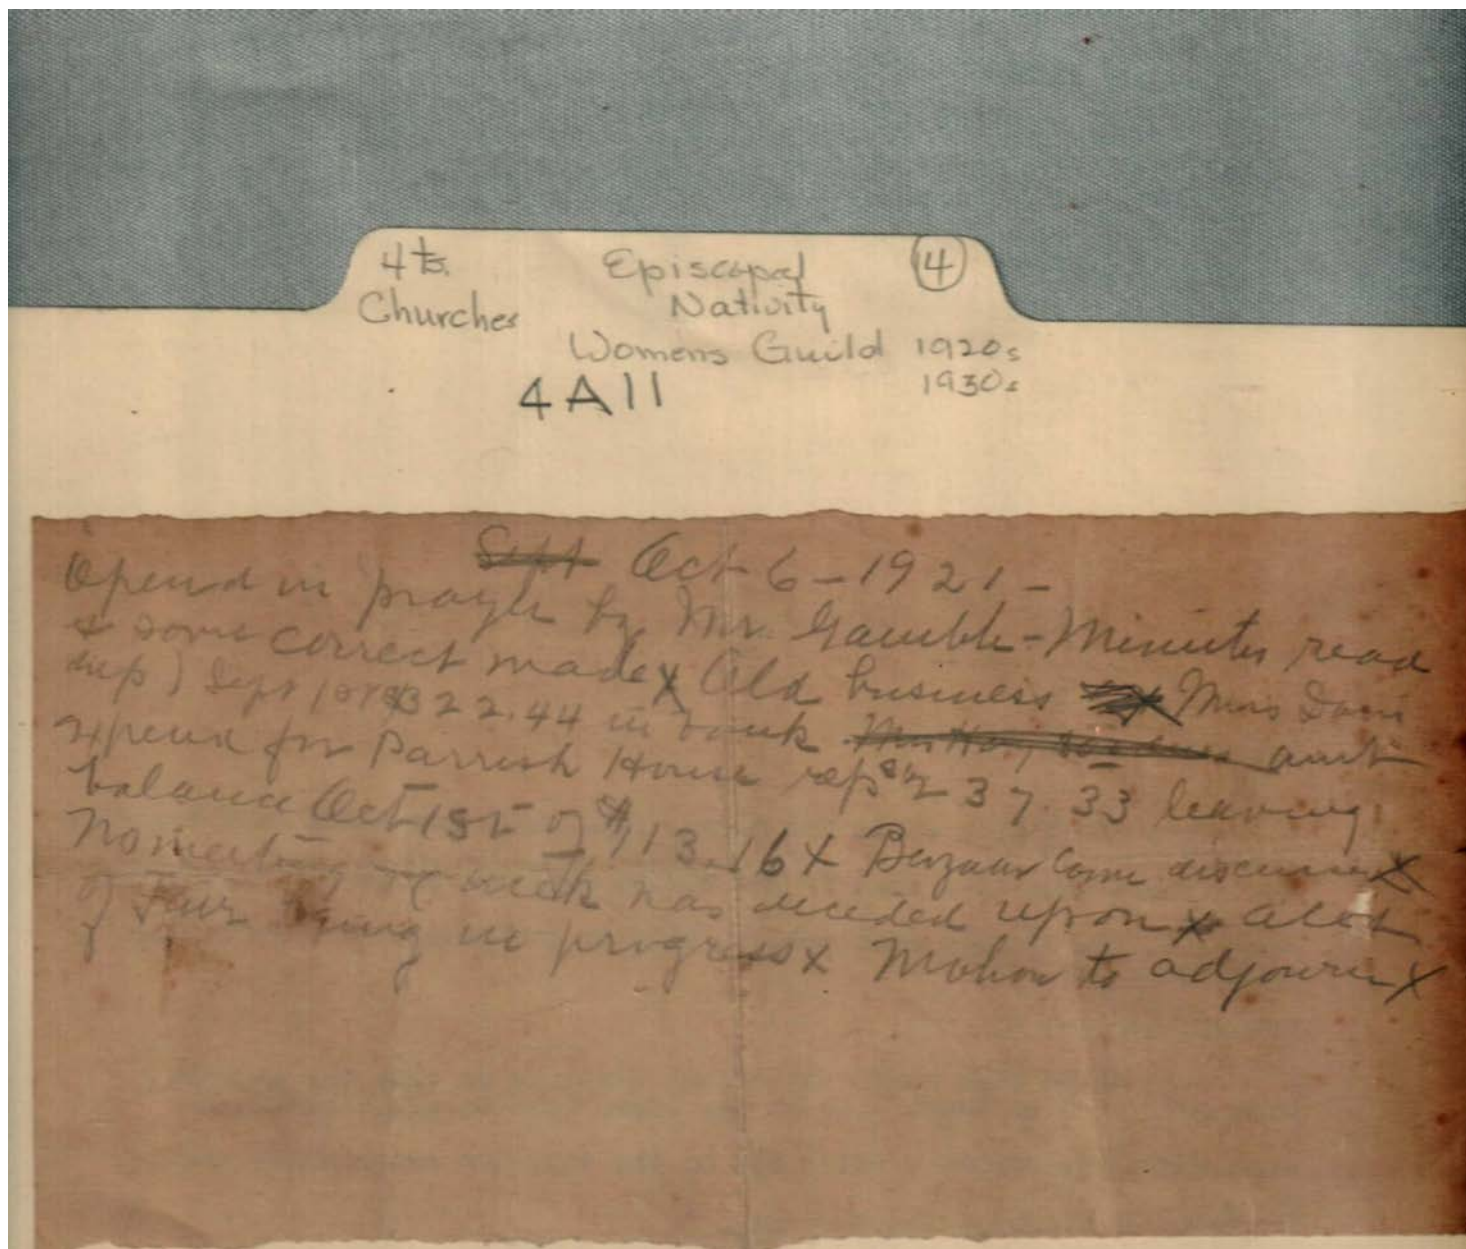 4 ts. Episcopal 14
Churches Nativity
Womens Guild 1920s
4A11 1930s
Sept Oct 6 - 1921 -
Opend in prayer by Mr. Gamble - Minutes read
& some correct made x Old business Miss Davis
Sept 1st $322.44 in bank amt
expend for Parrish House 237.33 leaving
balance Oct 1st of $113.16 x Bazaar Com discussed x
No meeting of week was decided upon x acct
of Fair being in progress x Motion to adjourn x